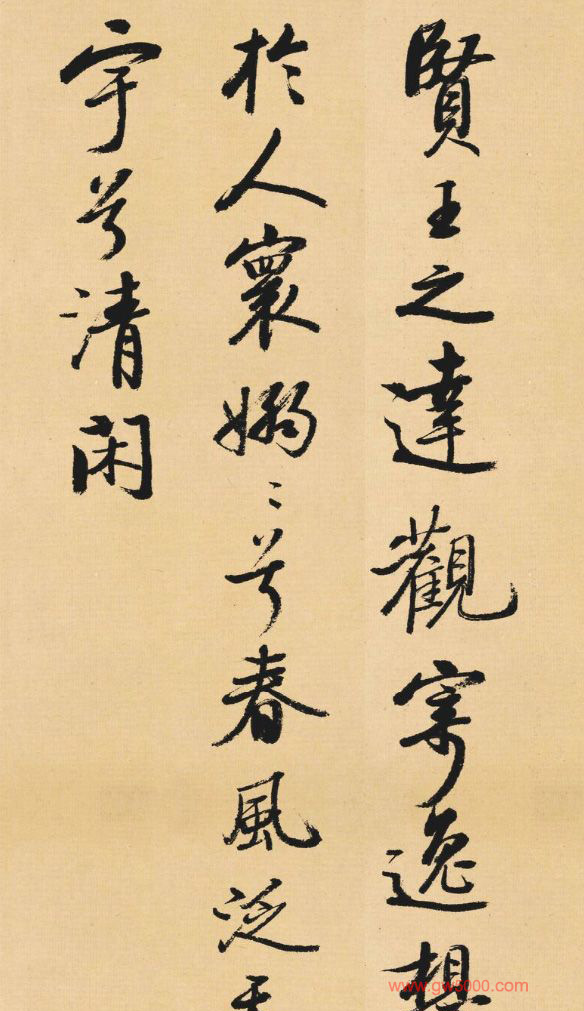 賢王之達觀寄逸想
於人寰嫋〻兮春風泛天
宇兮清閑
www.gw5000.com